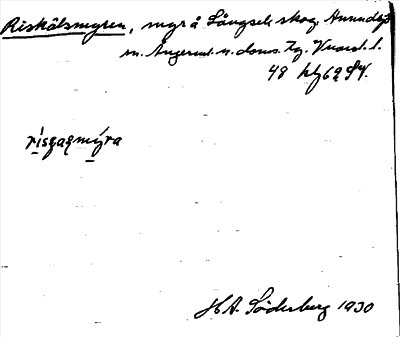 Riskälsmyren, myr å Långsele skog. Anundsjö
sn. Ångerml. n. doms. Zg. Vuorst l.
48 bl 62 S4.
rísʒaʒmýra
H.A. Söderberg 1930